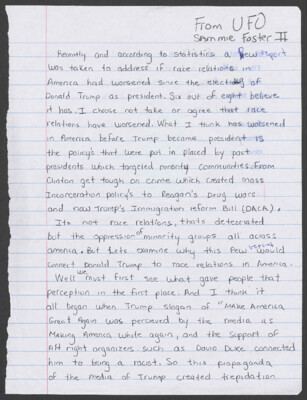 From UFO
Sammie Foster II
Recently and according to statistics a Pew report
was taken to address if race relations in
America had worsened since the electing of
Donald Trump as president. Six out of eight believe
it has. I choose not take or agree that race
relations have worsened. What I think has worsened
in America before Trump became president is
the policy's that were put in placed by past
presidents which targeted minority communities. From
Clinton get tough on crime which created mass
incarceration policy's to Reagan's drug wars
and now Trump's Immigration reform Bill (DACA).
Its not race relations, thats deteriorated
but the oppression of minority groups all across
america. But lets examine why this Pew would
connect Donald Trump to race relations in America.
Well we must first see what gave people that
perception in the first place. And I think it
all began when Trump slogan of "Make America
Great Again was perceived by the media as
Making America white again, and the support of
Alt right organizers such as David Duke connected
him to being a racist. So this propaganda
of the media of Trump created trepidation